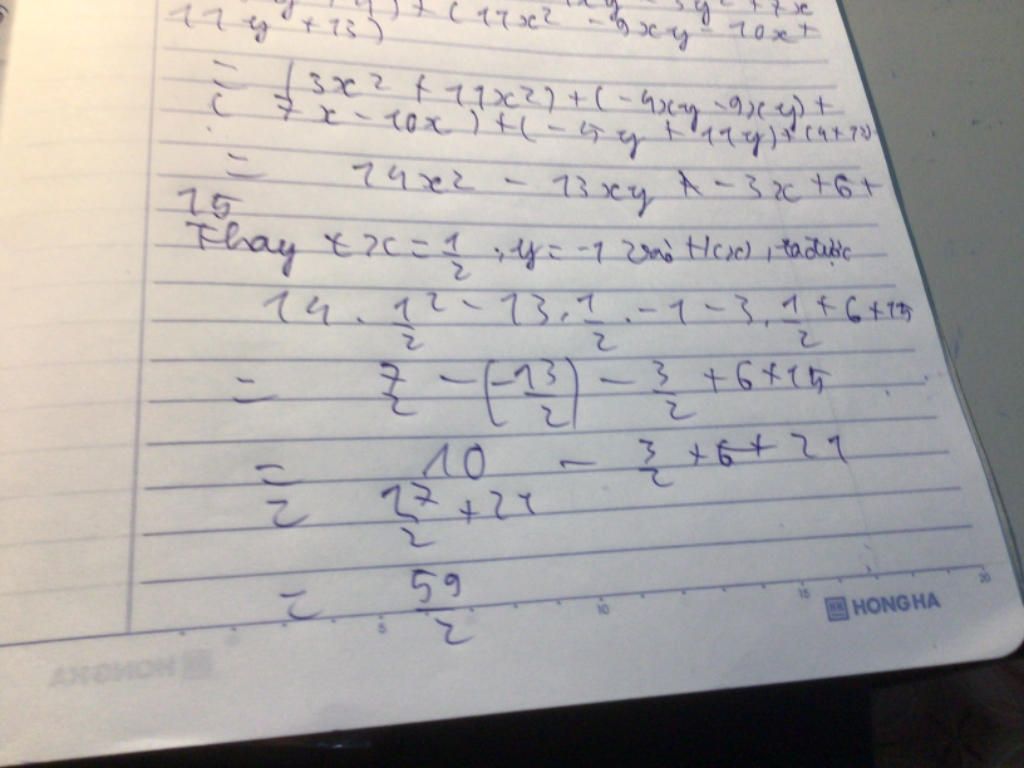 11y + 13) + (11x² - 9xy - 10x +
= (3x² + 11x²) + (-4xy - 9xy) +
( 7x - 10x) + (-5y + 11y) +
= 14x² - 13xy - 3x + 6 +
15
Thay x = 1/2 ; y = -1 vào H(x), ta được
14 . 1/2² - 13 . 1/2 . -1 - 3 . 1/2 + 6 + 15
= 7/2 - (-13/2) - 3/2 + 6 + 15
= 10 - 3/2 + 6 + 21
= 17/2 + 21
= 59/2
5 10 15 20
HONG HA